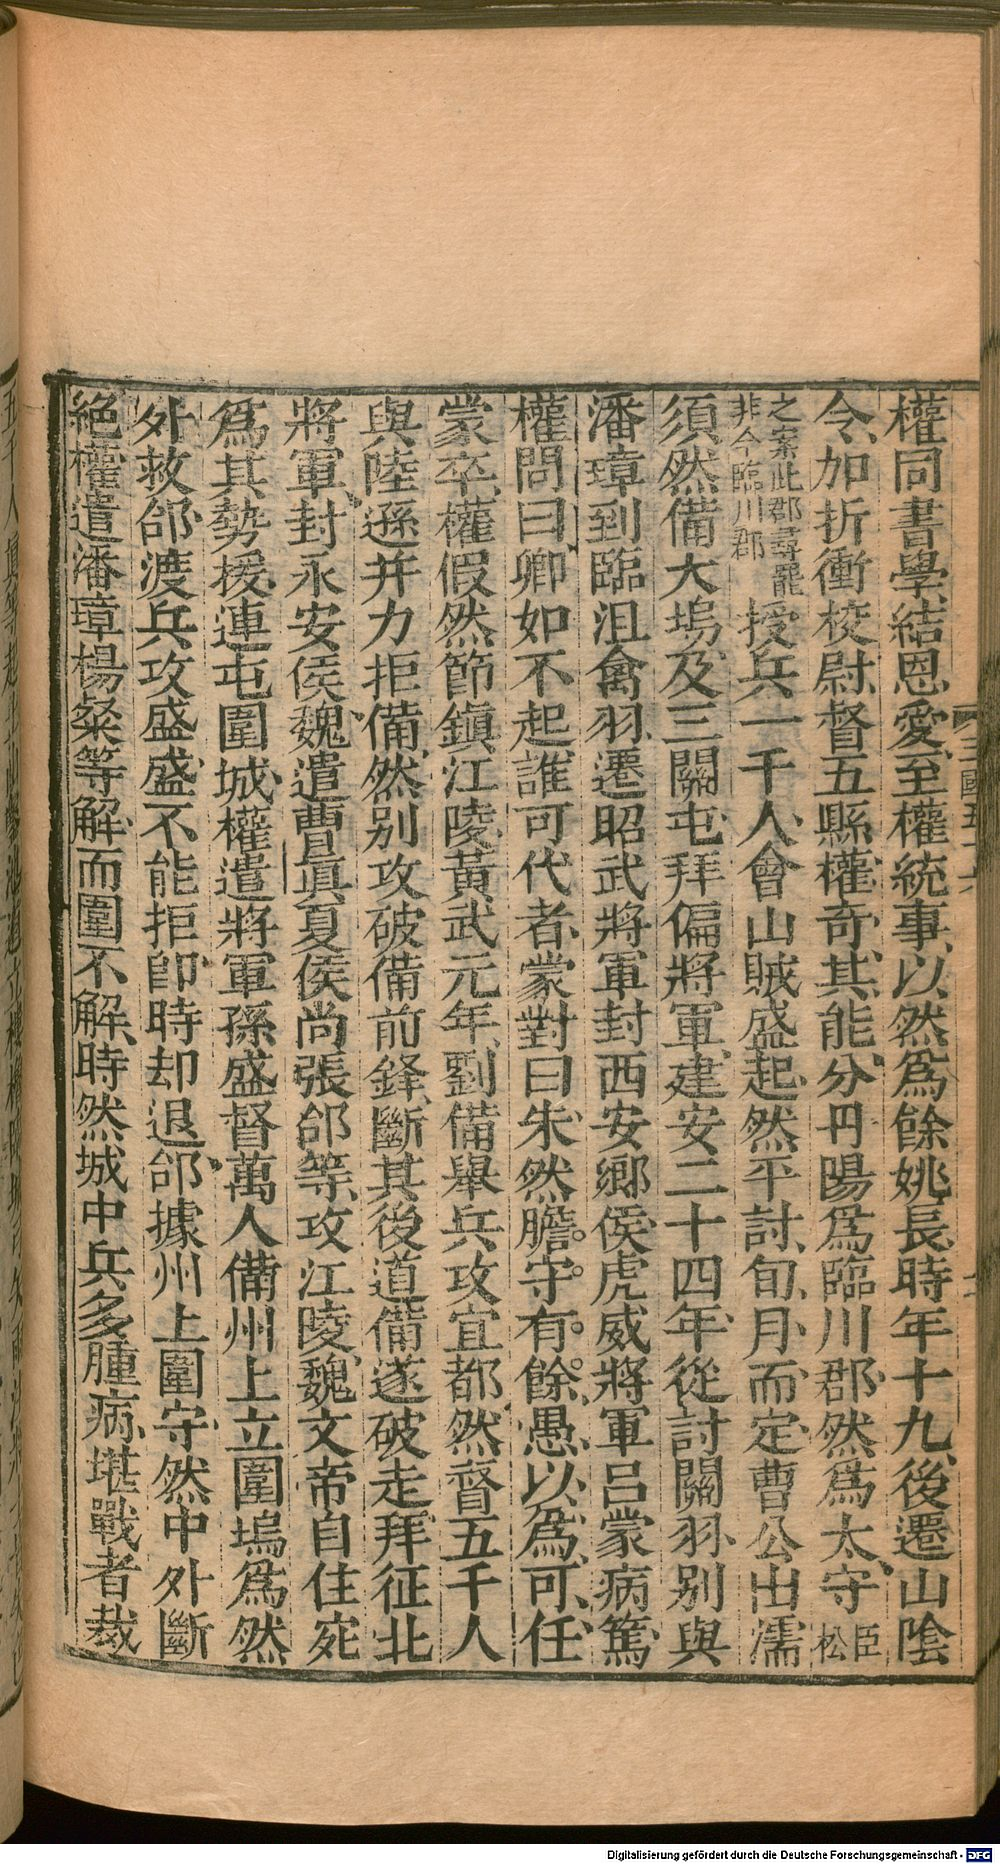 權同書學結恩愛至權統事以然爲餘姚長時年十九後遷山陰
令加折衝校尉督五縣權奇其能分丹陽爲臨川郡然爲太守臣松
之案此郡尋罷非今臨川郡授兵二千人會山賊盛起然平討旬月而定曹公出濡
須然備大塢及三關屯拜偏將軍建安二十四年從討關羽别與
潘璋到臨沮禽羽遷昭武將軍封西安鄉侯虎威將軍呂蒙病篤
權問曰卿如不起誰可代者蒙對曰朱然膽守有餘愚以爲可任
蒙卒權假然節鎮江陵黃武元年劉備舉兵攻宜都然督五千人
與陸遜并力拒備然别攻破備前鋒斷其後道備遂破走拜征北
將軍封永安侯魏遣曹眞夏侯尚張郃等攻江陵魏文帝自住宛
爲其勢援連屯圍城權遣將軍孫盛督萬人備州上立圍塢爲然
外救郃渡兵攻盛盛不能拒卽時却退郃據州上圍守然中外斷
絶權遣潘璋楊粲等解而圍不解時然城中兵多腫病堪戰者裁
三國五十六
Digitalisierung gefördert durch die Deutsche Forschungsgemeinschaft - DFG